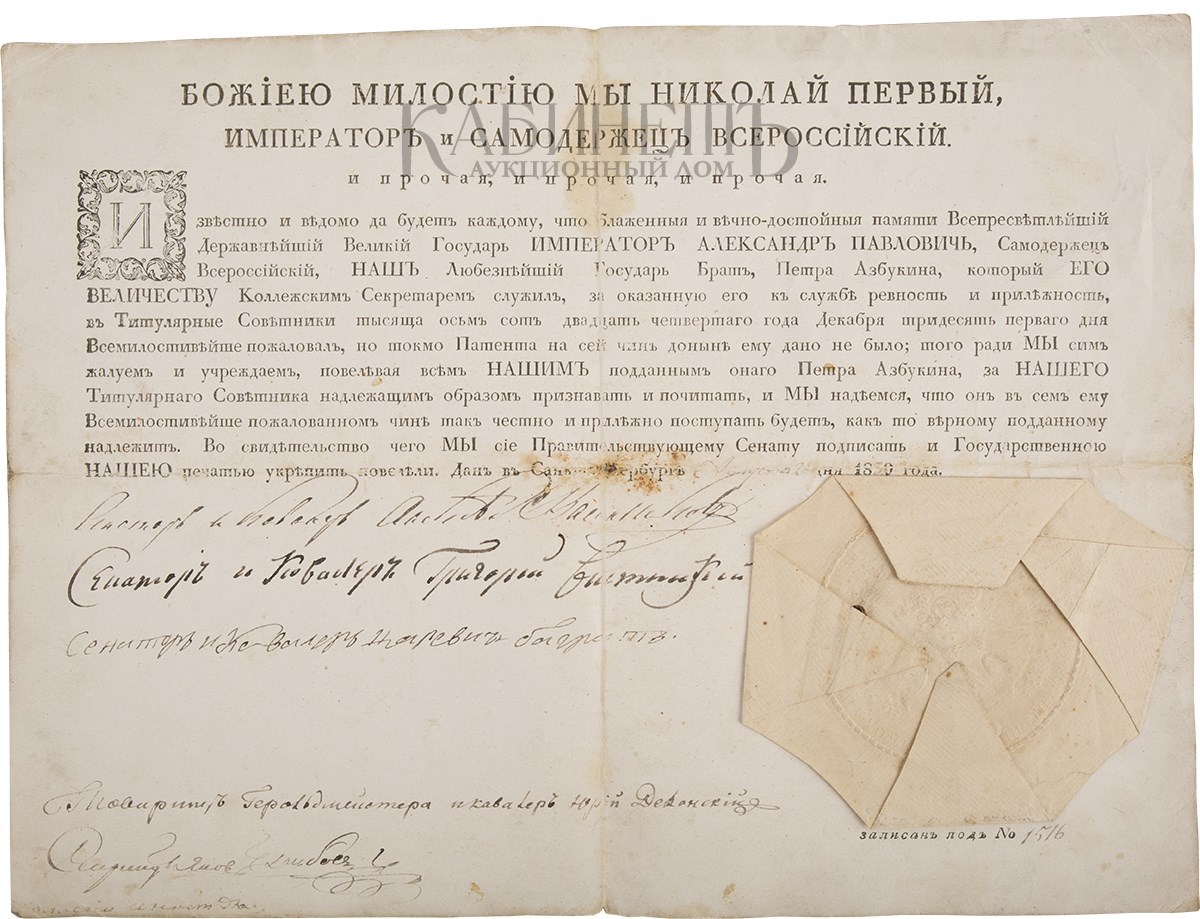 БОЖІЕЮ МИЛОСТІЮ МЫ НИКОЛАЙ ПЕРВЫЙ,
ИМПЕРАТОРЪ и САМОДЕРЖЕЦЪ ВСЕРОССІЙСКІЙ.
КАБИНЕТЪ
АУКЦИОННЫЙ ДОМ
и прочая, и прочая, и прочая.
Извѣстно и вѣдомо да будетъ каждому, что блаженныя и вѣчно-достойныя памяти Всепресвѣтлѣйшій
Державнѣйшій Великій Государь ИМПЕРАТОРЪ АЛЕКСАНДРЪ ПАВЛОВИЧЬ, Самодержецъ
Всероссійскій, НАШЪ Любезнѣйшій Государь Братъ, Петра Азбукина, который ЕГО
ВЕЛИЧЕСТВУ Коллежскимъ Секретаремъ служилъ, за оказанную его къ службѣ ревность и прилѣжность,
въ Титулярные Совѣтники тысяща осьмъ сотъ двадцать четвертаго года Декабря тридесять перваго дня
Всемилостивѣйше пожаловалъ, но токмо Патента на сей чинъ донынѣ ему дано не было; того ради МЫ симъ
жалуемъ и учреждаемъ, повелѣвая всѣмъ НАШИМЪ подданнымъ онаго Петра Азбукина, за НАШЕГО
Титулярнаго Совѣтника надлежащимъ образомъ признавать и почитать, и МЫ надѣемся, что онъ въ семъ ему
Всемилостивѣйше пожалованномъ чинѣ такъ честно и прилѣжно поступать будетъ, какъ то вѣрному подданному
надлежитъ. Во свидѣтельство чего МЫ сіе Правительствующему Сенату подписать и Государственною
НАШЕЮ печатью укрѣпить повелѣли. Данъ въ Санктпетербургѣ дня 1830 года.
Сенаторъ и Кавалеръ
Сенаторъ и Кавалеръ Григорій
Сенаторъ и Кавалеръ царевичъ багратъ.
Товарищъ Герольдмейстера и кавалеръ Юрій Деконскій
Яковъ
записанъ подъ No 1516